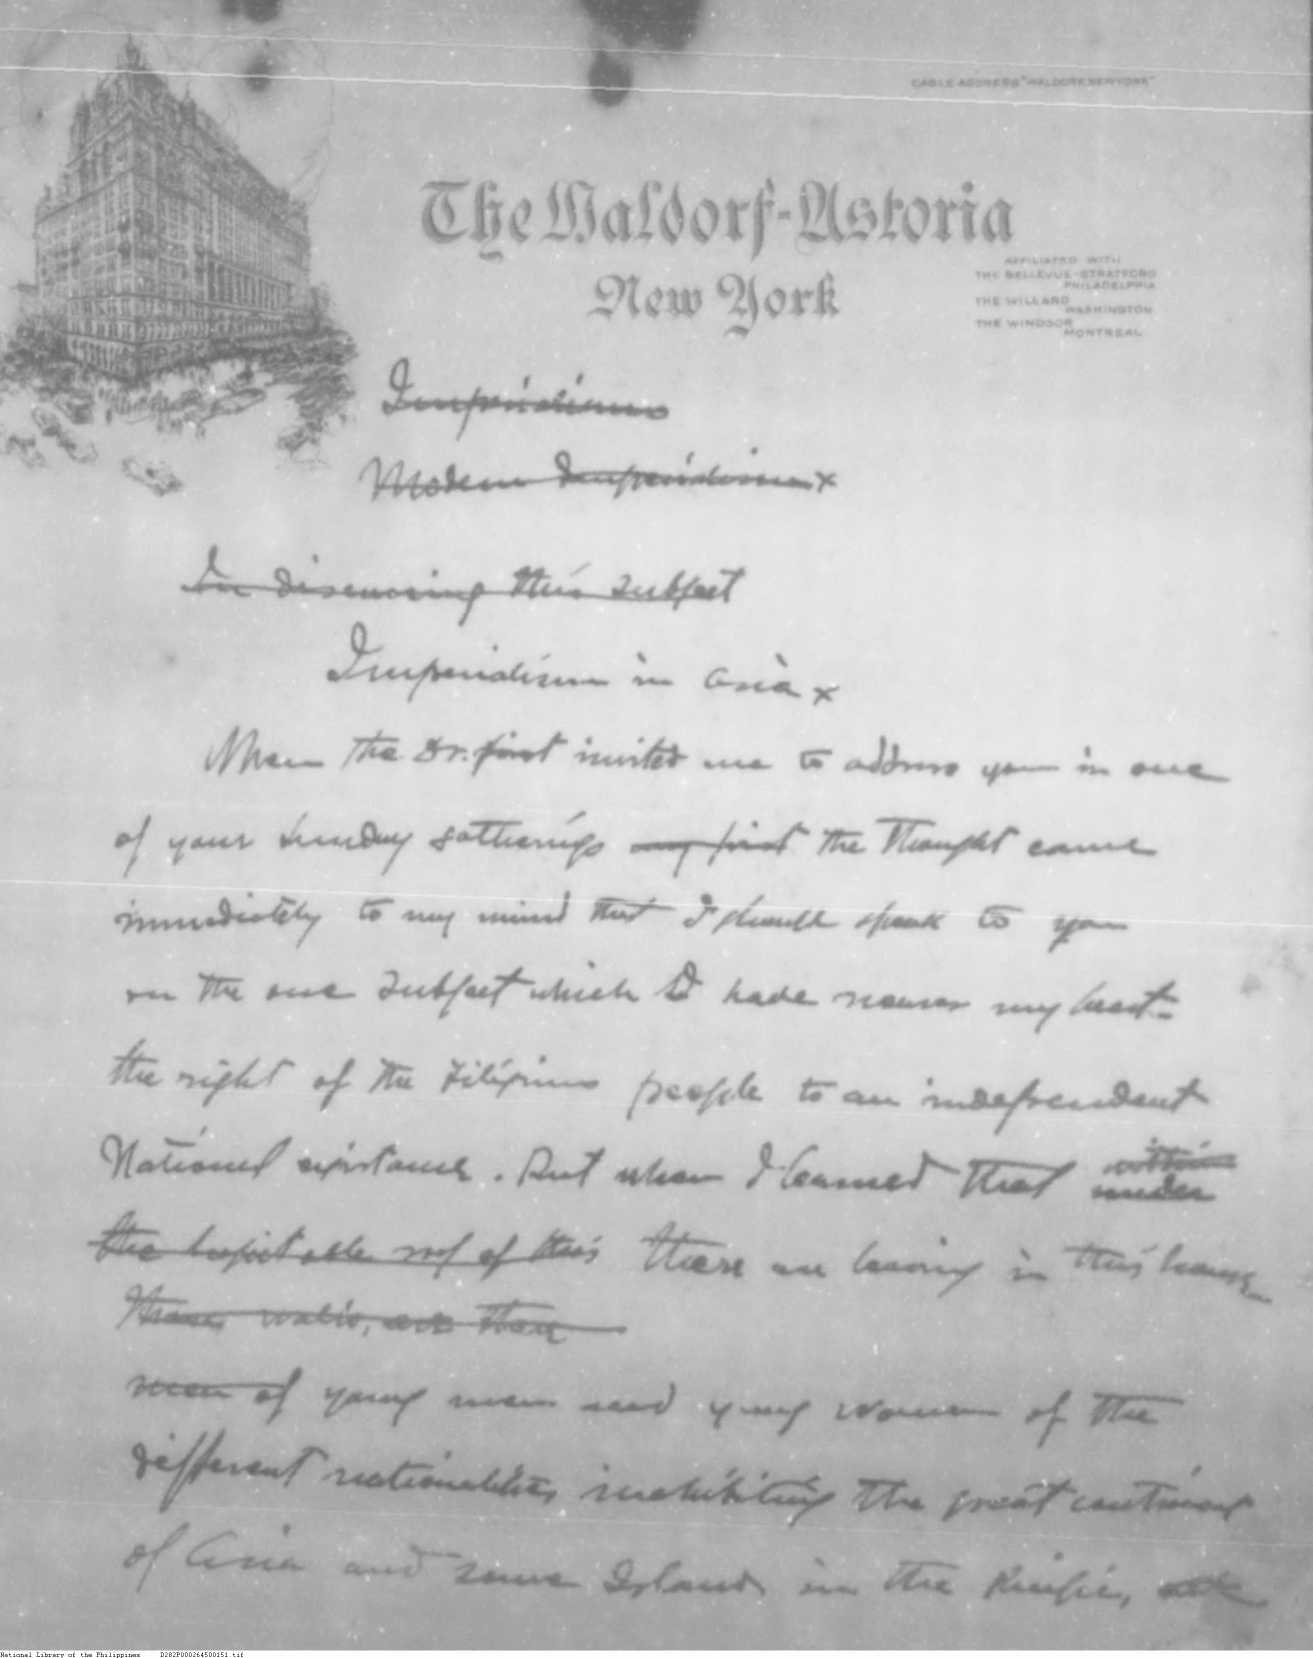 CABLE ADDRESS "WALDORF NEW YORK"
The Waldorf-Astoria
New York
AFFILIATED WITH
THE BELLEVUE-STRATFORD
PHILADELPHIA
THE WILLARD
WASHINGTON
THE WINDSOR
MONTREAL
Imperialism
Modern Imperialism x
In discussing this subject
Imperialism in Asia x
When the Dr. first invited me to address you in one
of your Sunday gatherings my first the thought came
immediately to my mind that I should speak to you
on the one subject which I have nearer my heart -
the right of the Filipino people to an independent
National existence. But when I learned that within
under
the hospitable roof of this there are living in this house
these walls, are there
men of young men and young women of the
different nationalities inhabiting the great continent
of Asia and some Islands in the Pacific,
National Library of the Philippines D282P000264500151.tif